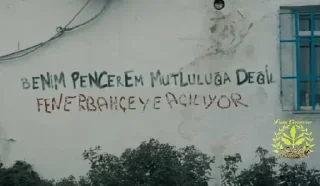 BENİM PENCEREM MUTLULUĞA DEĞİL
FENERBAHÇEYE AÇILIYOR